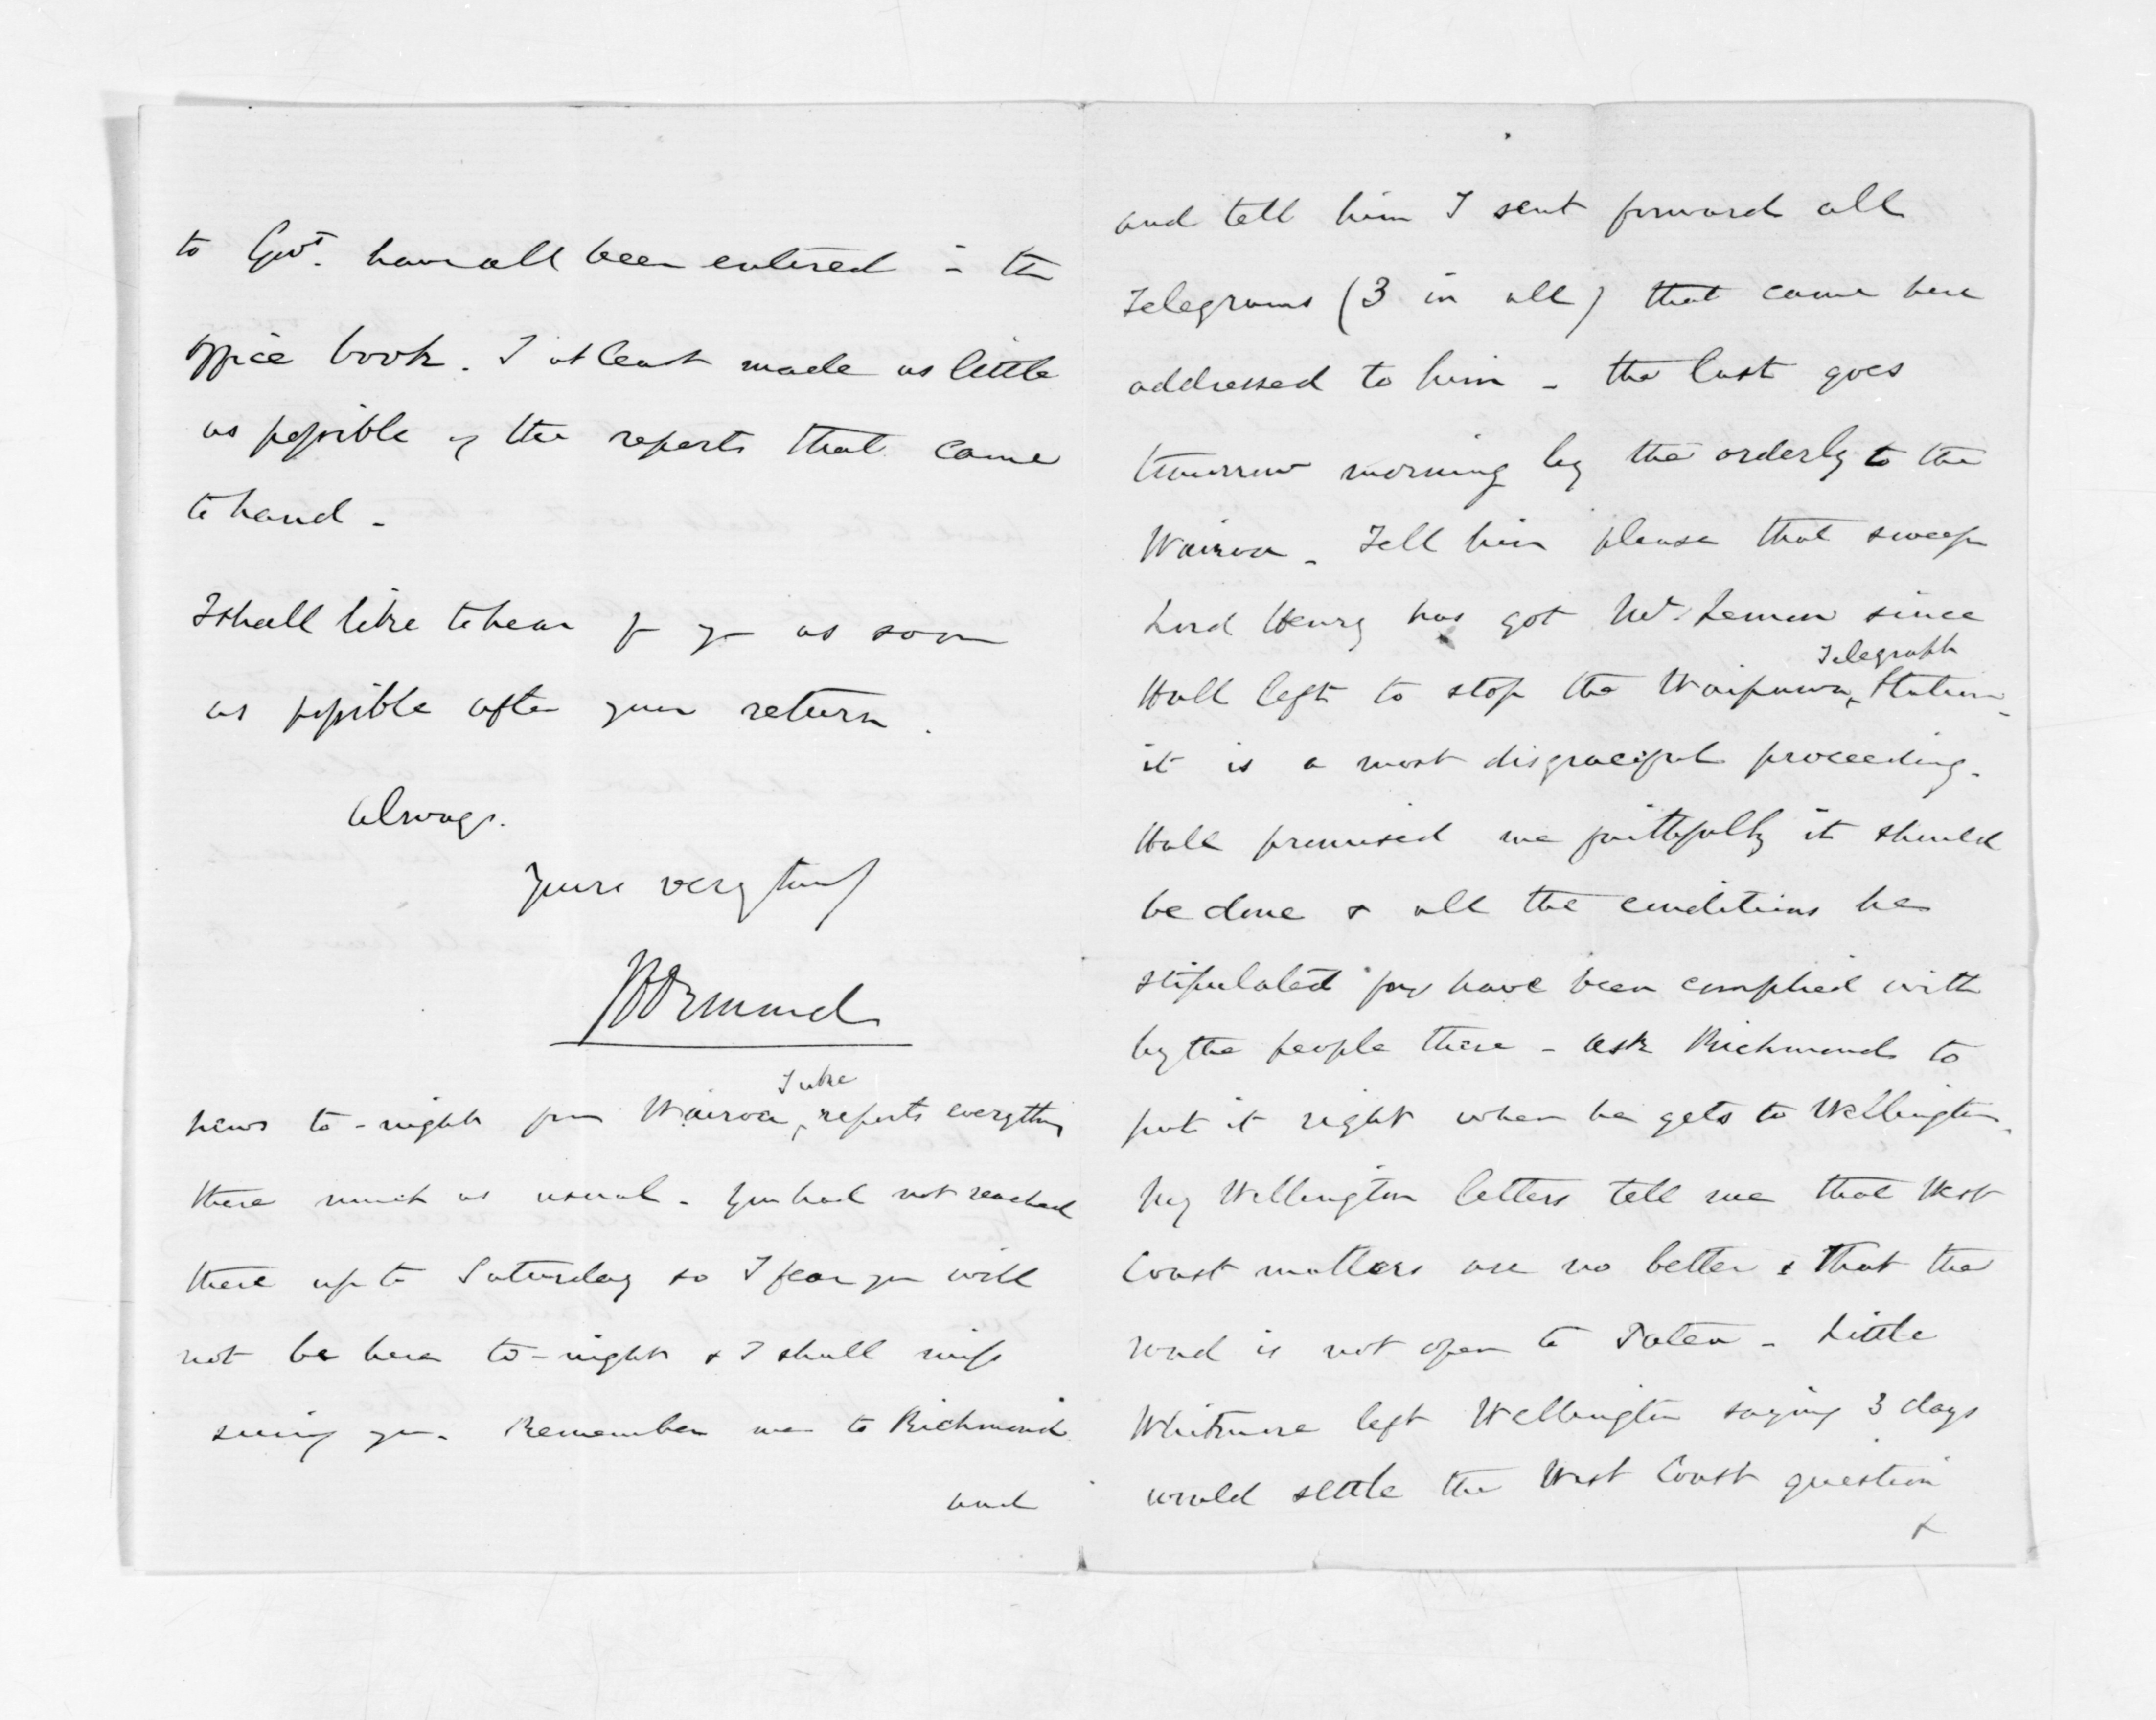 to Govt. have all been entered in the
office book. I at least made as little
as possible of the reports that came
to hand -
I shall like to hear fr you as soon
as possible after your return.
Always.
Yours very truly
JDOrmond
news to-night from Wairoa, reports everything
Tuke
there much as usual - You had not reached
there up to Saturday so I fear you will
not be here to-night & I shall miss
seeing you. Remember me to Richmond
and
and tell him I sent forward all
Telegrams (3 in all) that came here
addressed to him - the last goes
tomorrow morning by the orderly to the
Wairoa - Tell him please that sweep
Lord Henry has got Mr. Lemon since
Telegraph
Hall left to stop the Waipawa Station -
it is a most disgraceful proceeding -
Hall promised me faithfully it should
be done & all the conditions he
stipulated for have been complied with
by the people there - ask Richmond to
put it right when he gets to Wellington.
My Wellington letters tell me that West
Coast matters are no better & that the
road is not open to Patea - Little
Whitmore left Wellington saying 3 days
would settle the West Coast question
&